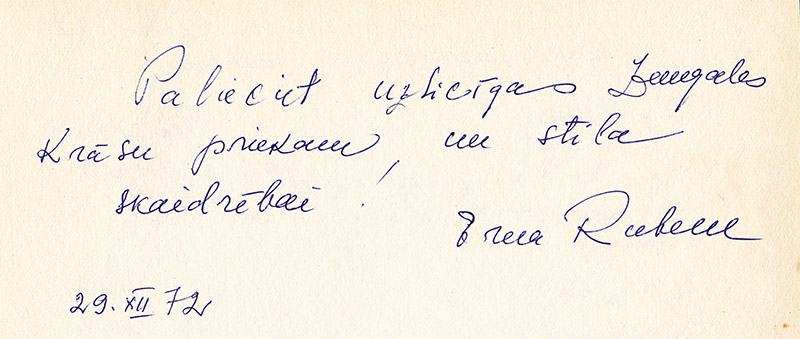 Palieciet uzticīgas Zemgales
krāsu priekam, un stila
skaidrībai!
Erna Rubene
29. XII 72